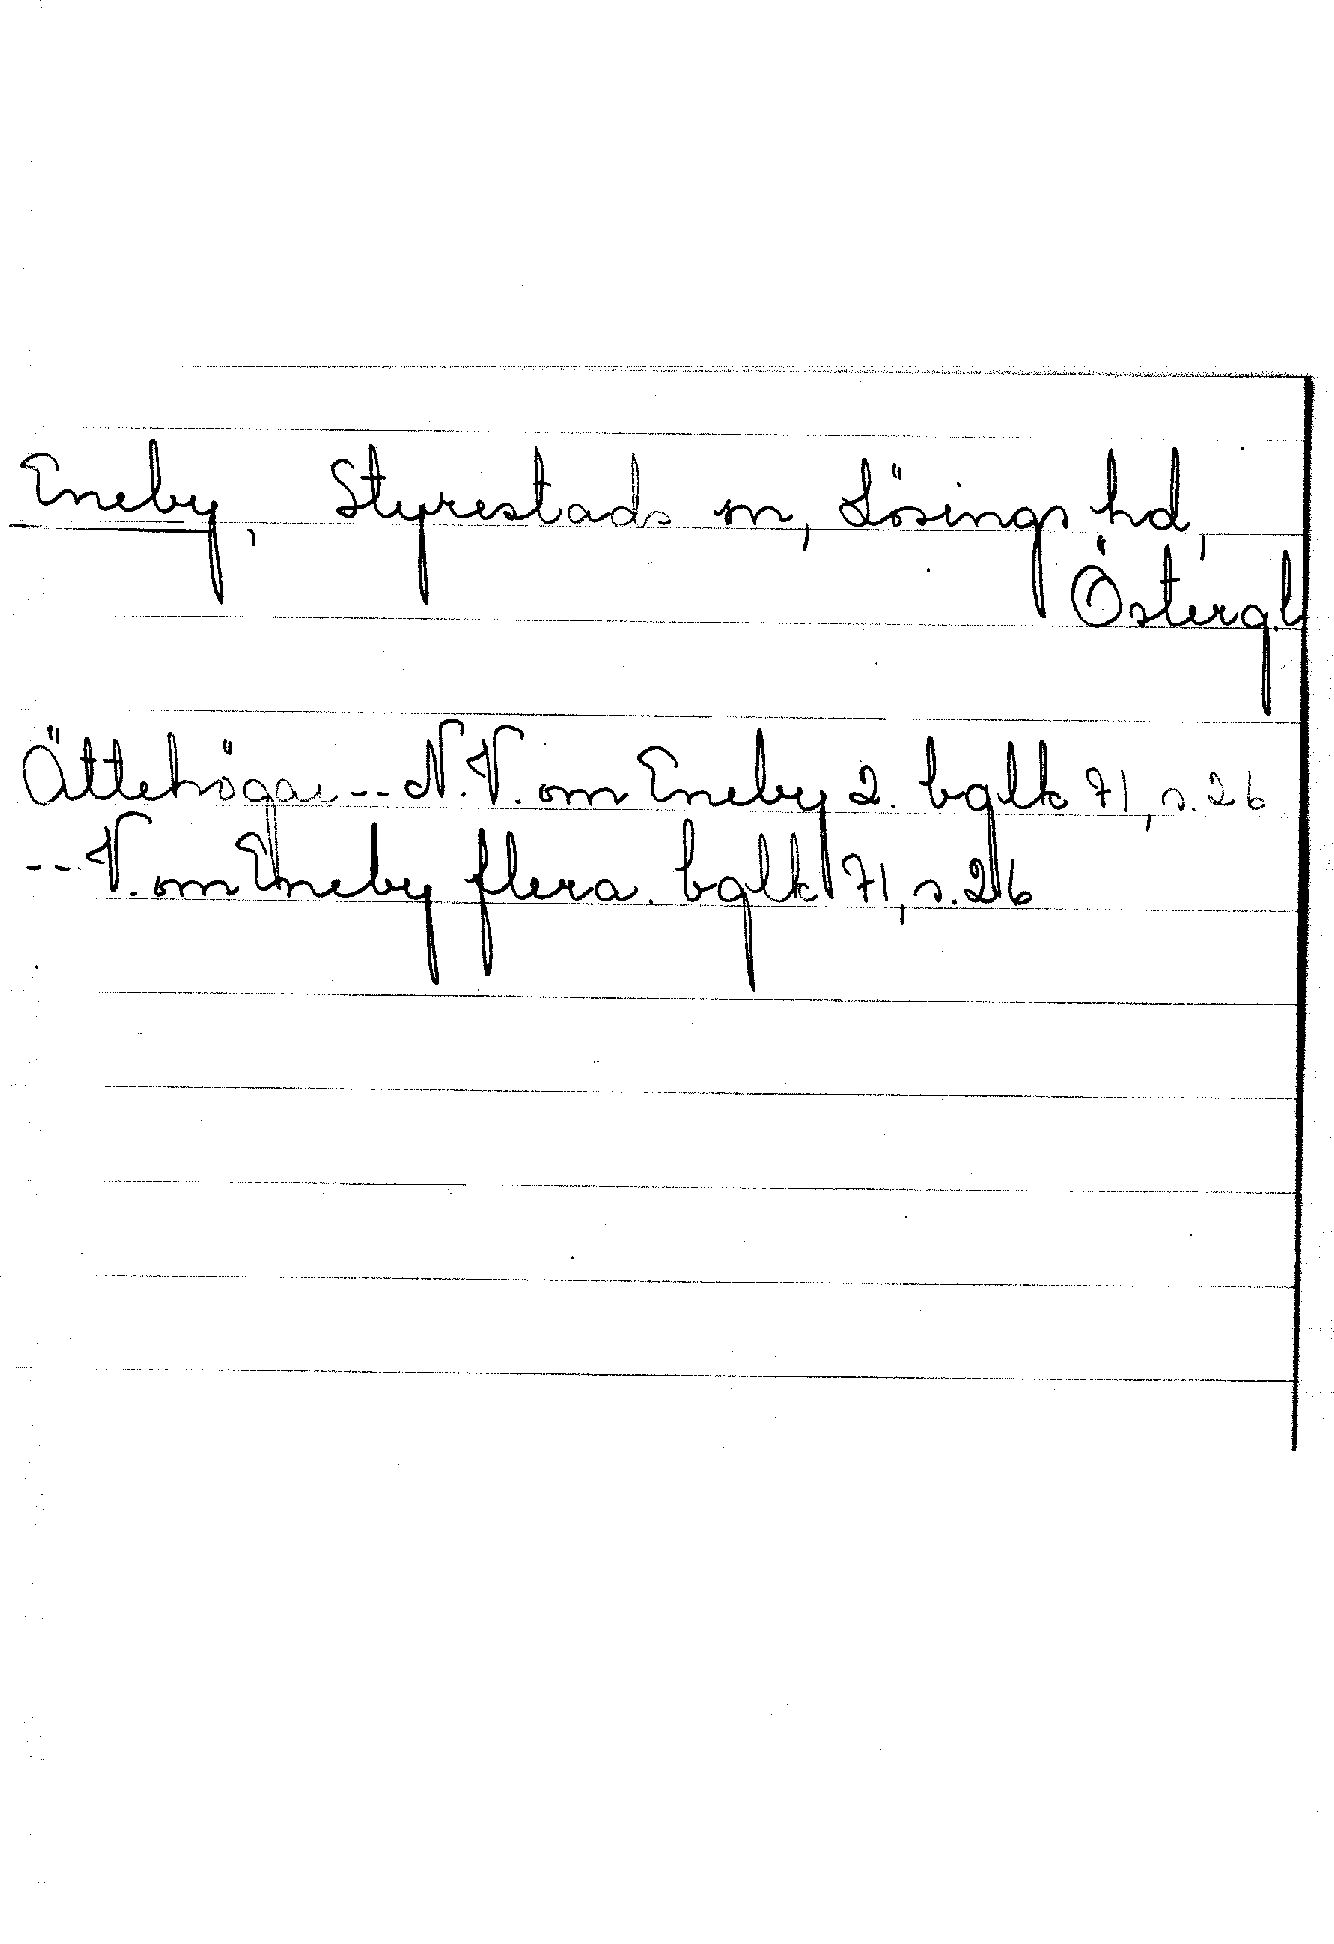 Eneby, Styrestads sn, Lösings hd,
Österg.l
Ättehögar -- N.V. om Eneby 2. bglk 71, s.26
-- V. om Eneby flera. bglk 71, s.26